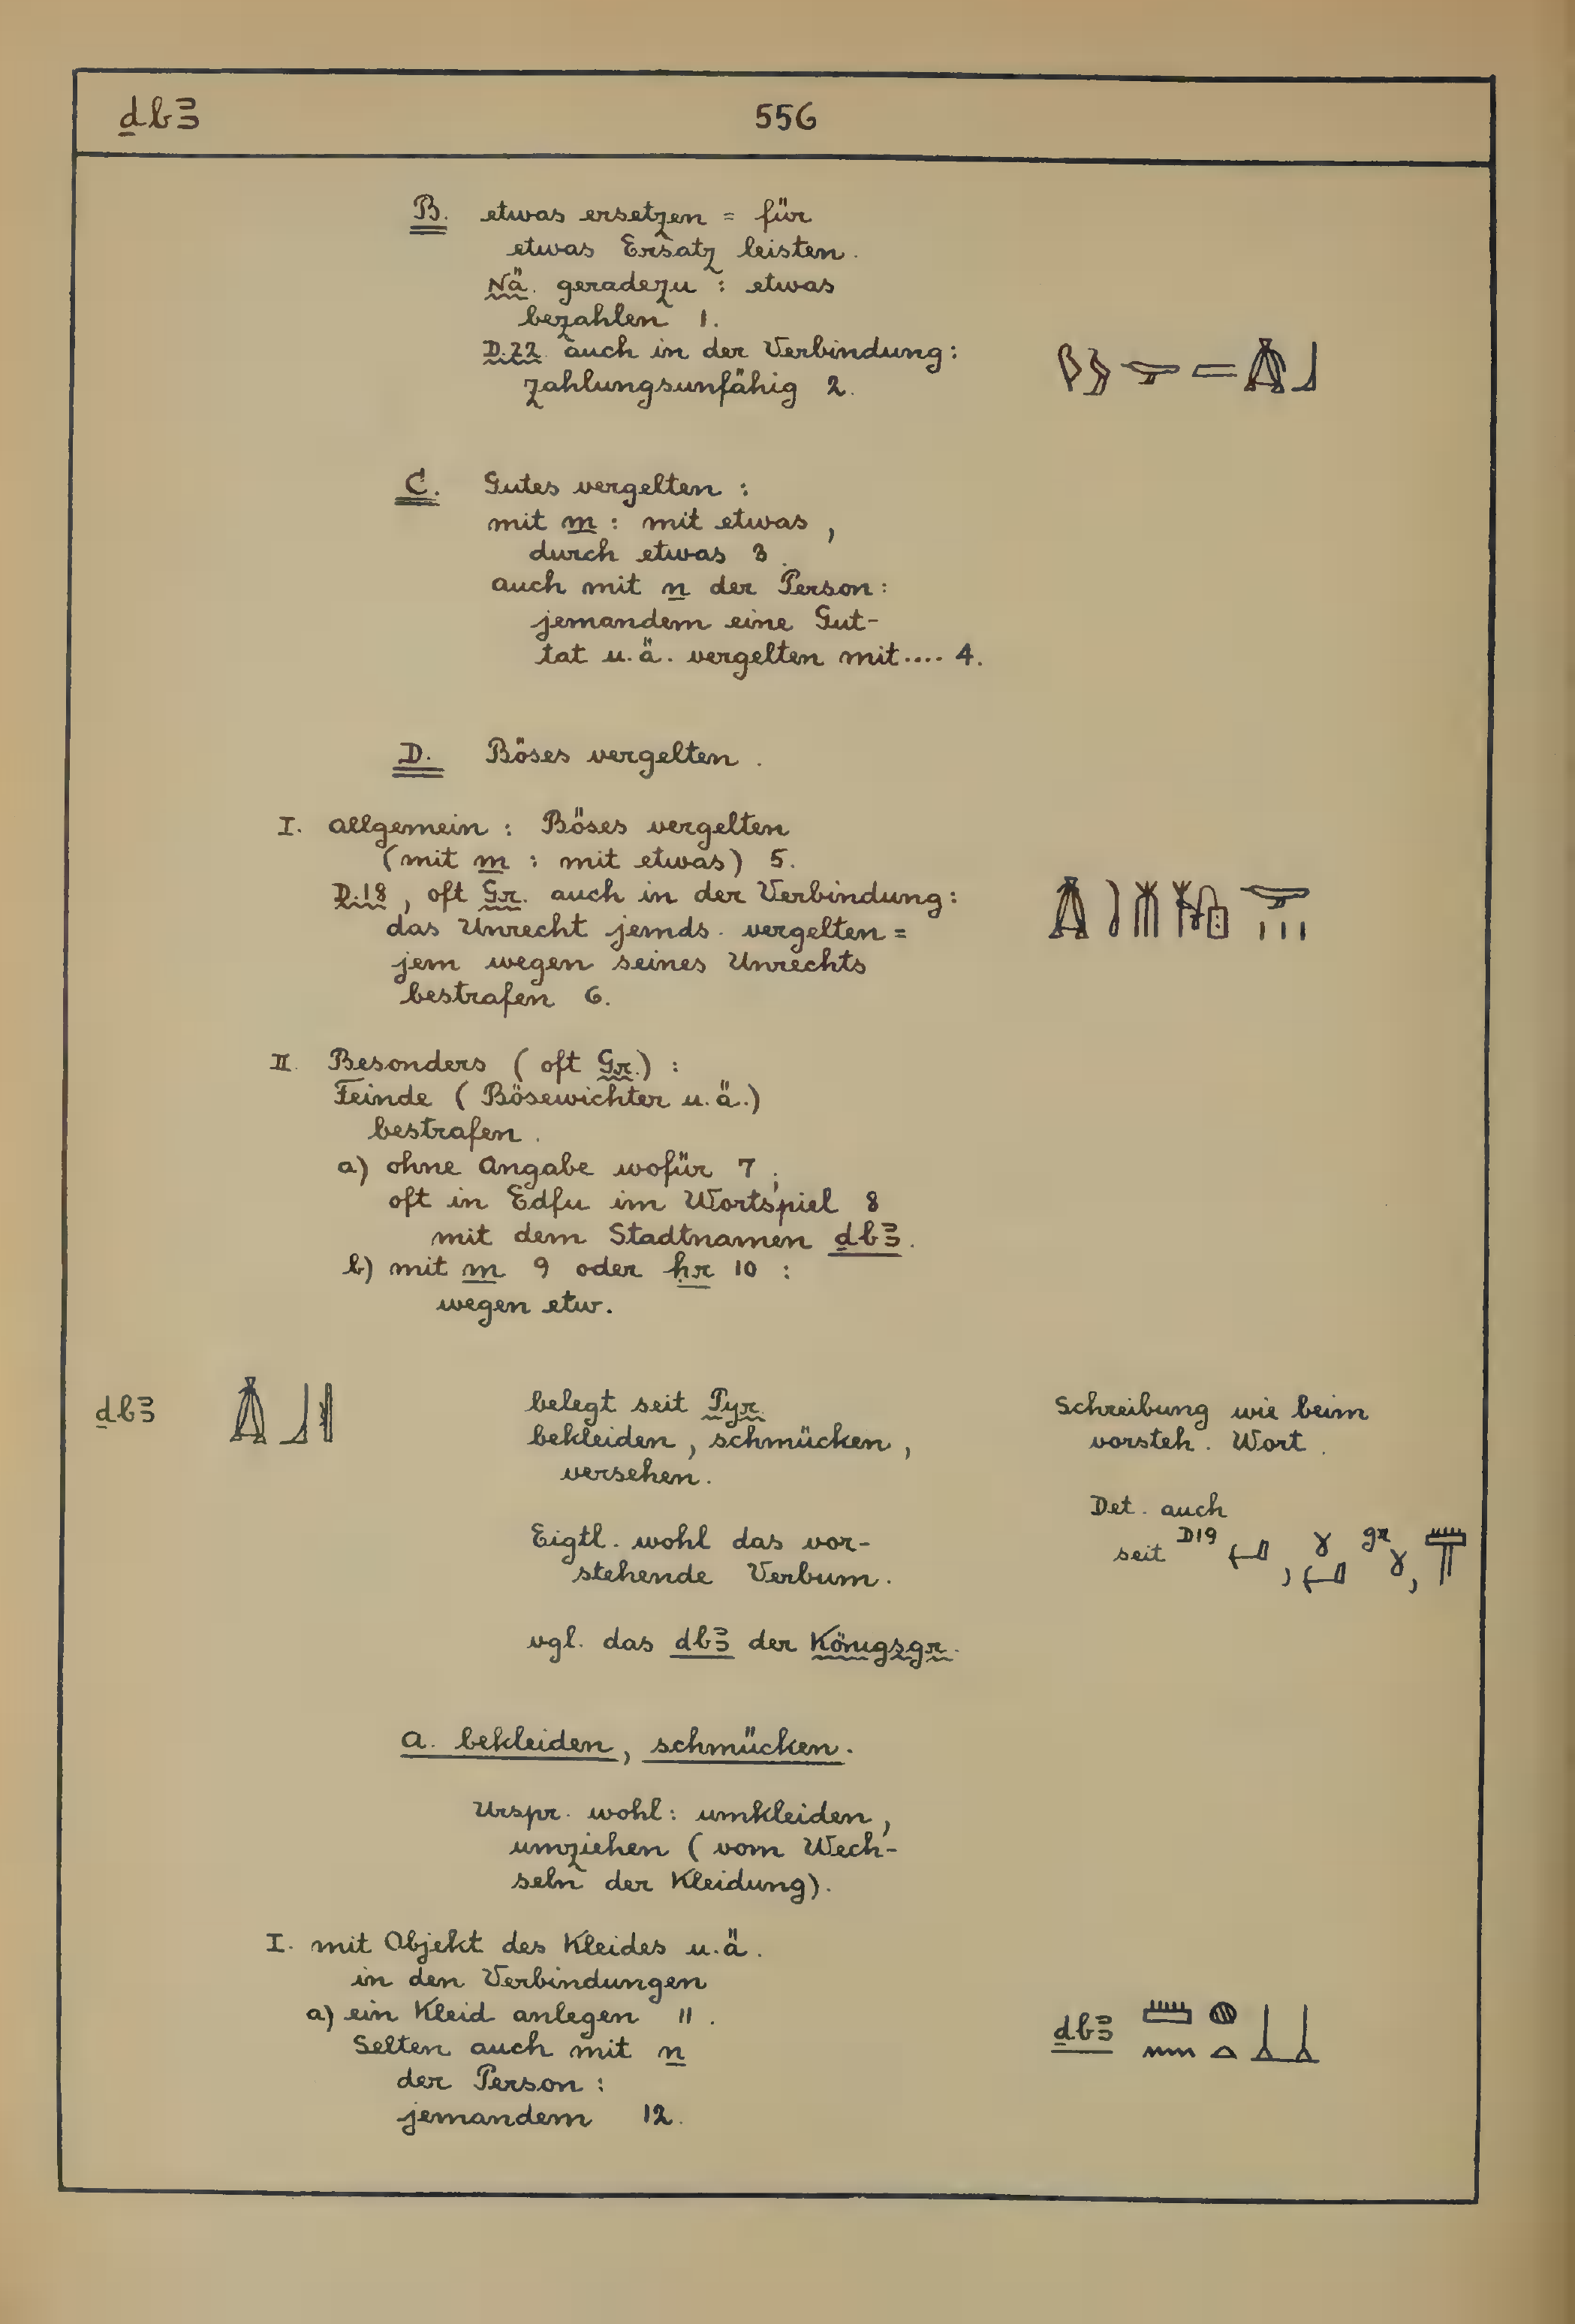 ḏbꜣ 556
B. etwas ersetzen = für
etwas Ersatz leisten.
Nä. geradezu : etwas
bezahlen 1.
D.22 auch in der Verbindung:
zahlungsunfähig 2.
C. Gutes vergelten :
mit m : mit etwas ,
durch etwas 3.
auch mit n der Person:
jemandem eine Gut-
tat u.ä. vergelten mit.... 4.
D. Böses vergelten .
I. allgemein : Böses vergelten
(mit m : mit etwas) 5.
D.18 , oft Gr. auch in der Verbindung:
das Unrecht jemds. vergelten =
jem wegen seines Unrechts
bestrafen 6.
II. Besonders ( oft Gr.) :
Feinde ( Bösewichter u.ä.)
bestrafen .
a) ohne Angabe wofür 7 ;
oft in Edfu im Wortspiel 8
mit dem Stadtnamen ḏbꜣ.
b) mit m 9 oder ḥr 10 :
wegen etw.
ḏbꜣ belegt seit Pyr. Schreibung wie beim
bekleiden , schmücken , vorsteh. Wort .
versehen.
Det. auch
Eigtl. wohl das vor- seit D19 gr
stehende Verbum.
vgl. das ḏbꜣ der Königsgr.
a. bekleiden, schmücken.
Urspr. wohl: umkleiden,
umziehen ( vom Wech-
seln der Kleidung).
I. mit Objekt des Kleides u.ä.
in den Verbindungen
a) ein Kleid anlegen 11 . ḏbꜣ
Selten auch mit n
der Person :
jemandem 12.